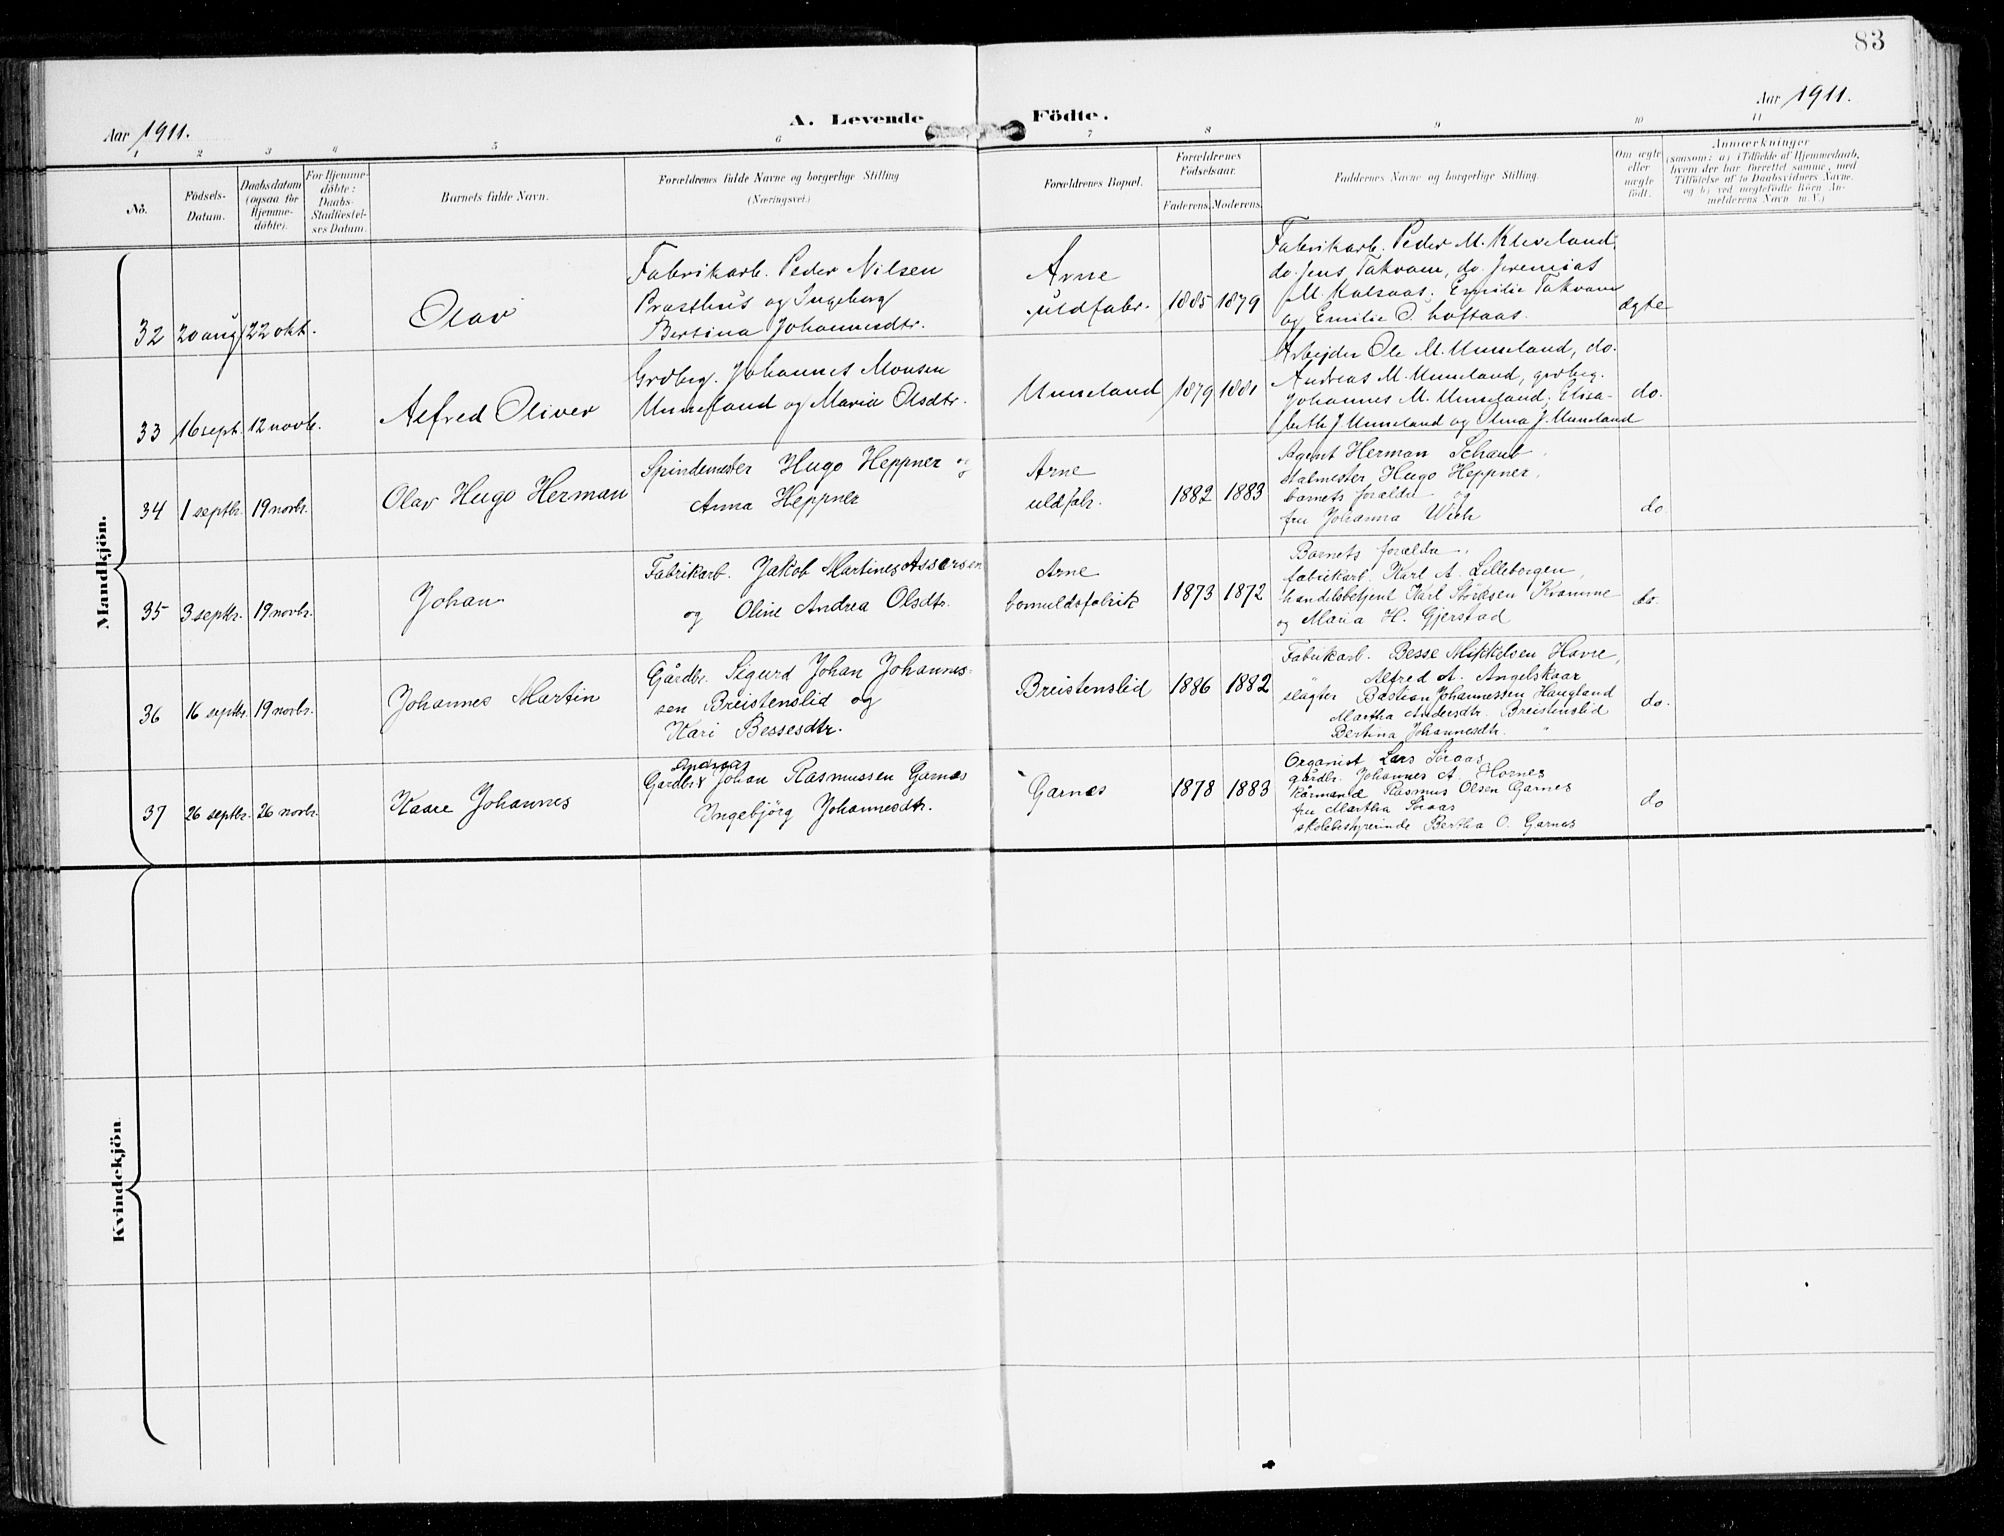 83
Aar 1911.
A. Levende Födte.
Aar 1911.
1 2 3 4 5 6 7 8 9 10 11
No.
Födsels-
Datum.
Daabsdatum
(ogsaa för
Hjemme-
döbte).
For Hjemme-
döbte:
Daabs-
Stadfæstel-
ses Datum.
Barnets fulde Navn.
Forældrenes fulde Navne og borgerlige Stilling
(Næringsvei.)
Forældrenes Bopæl.
Forældrenes
Födselsaar.
Faderens. Moderens.
Faddernes Navne og borgerlige Stilling.
Om ægte
eller
uægte
födt.
Anmærkninger
(saasom: a) i Tilfælde af Hjemmedaab,
hvem der har forrettet samme, med
Tilföielse af to Daabsvidners Navne,
og b) ved uægtefödte Börn An-
melderens Navn m.V.)
Mandkjön.
32 20 aug 22 okt.
Olav
Fabrikarb. Peder Nilsen
Prosthus og Ingeborg
Bertina Johannesdtr.
Arne
uldfabr.
1885 1879
Fabrikarb. Peder M. Kleveland,
do. Jens Takvam, do. Jeremias
M. Kalsaas. Emilie Takvam
og Emilie O. Loftaas.
ægte
33 16 sept. 12 novb.
Alfred Oliver
Grdbrg. Johannes Monsen
Unneland og Maria Olsdtr.
Unneland
1879 1881
Arbejder Ole M. Unneland, do.
Andreas M. Unneland, grdbrg.
Johannes M. Unneland; Elisa-
beth J. Unneland og Olina J. Unneland
do.
34 1 septbr. 19 novbr.
Olav Hugo Herman
Spindemester Hugo Heppner og
Anna Heppner
Arne
uldfabr.
1882 1883
Agent Herman Schaub,
stalmester Hugo Heppner,
barnets forældre og
fru Johanna
do.
35 3 septbr. 19 novbr.
Johan
Fabrikarb. Jakob Martines Assersen
og Oline Andrea Olsdtr.
Arne
bomuldsfabrik
1873 1872
Barnets forældre,
fabrikarb. Karl A. Lilleborgen,
handelsbetjent Karl Kvamme
og Maria H. Gjerstad
do.
36 16 septbr. 19 novbr.
Johannes Martin
Gårdbr. Sigurd Johan Johannes-
sen Breistenslid og
Kari Bessesdtr.
Breistenslid
1886 1882
Fabrikarb. Besse Mikkelsen Havre,
Alfred A. Angelskaar
slagter Bastian Johannessen Haugland
Martha Andersdtr. Breistenslid
Bertina Johannesdtr. "
do.
37 26 septbr. 26 novbr.
Kaare Johannes
Andreas
Gårdbr. Johan Rasmussen Garnes
Ingebjörg Johannesdtr.
Garnes
1878 1883
Organist Lars Söraas
gårdbr. Johannes A. Hornes
kårmand Rasmus Olsen Garnes
fru Martha Söraas
skolebestyrerinde Bertha O. Garnes
do
Kvindekjön.